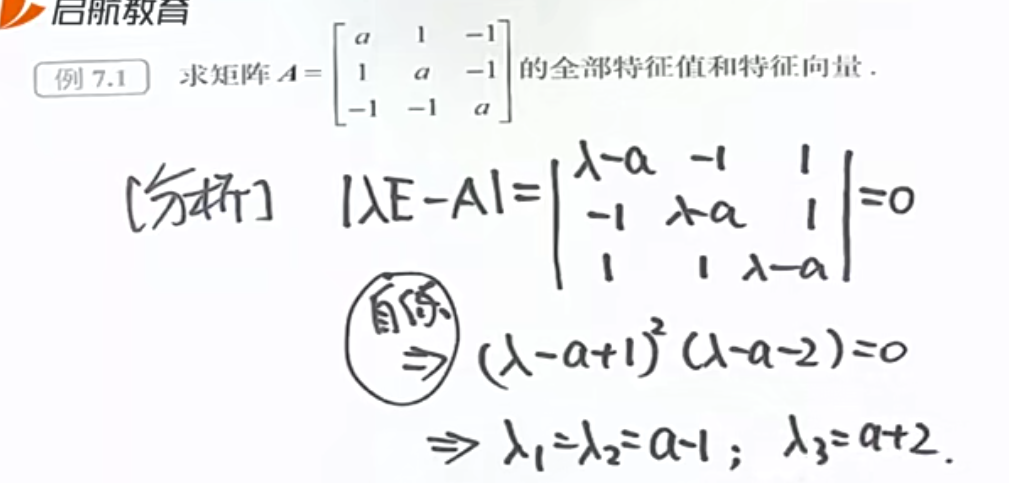 启航教育
例 7.1 求矩阵 A = [a 1 -1; 1 a -1; -1 -1 a] 的全部特征值和特征向量.
[分析] |λE-A| = |λ-a -1 1; -1 λ-a 1; 1 1 λ-a| = 0
自练 ⇒ (λ-a+1)² (λ-a-2)=0
⇒ λ₁=λ₂=a-1; λ₃=a+2.